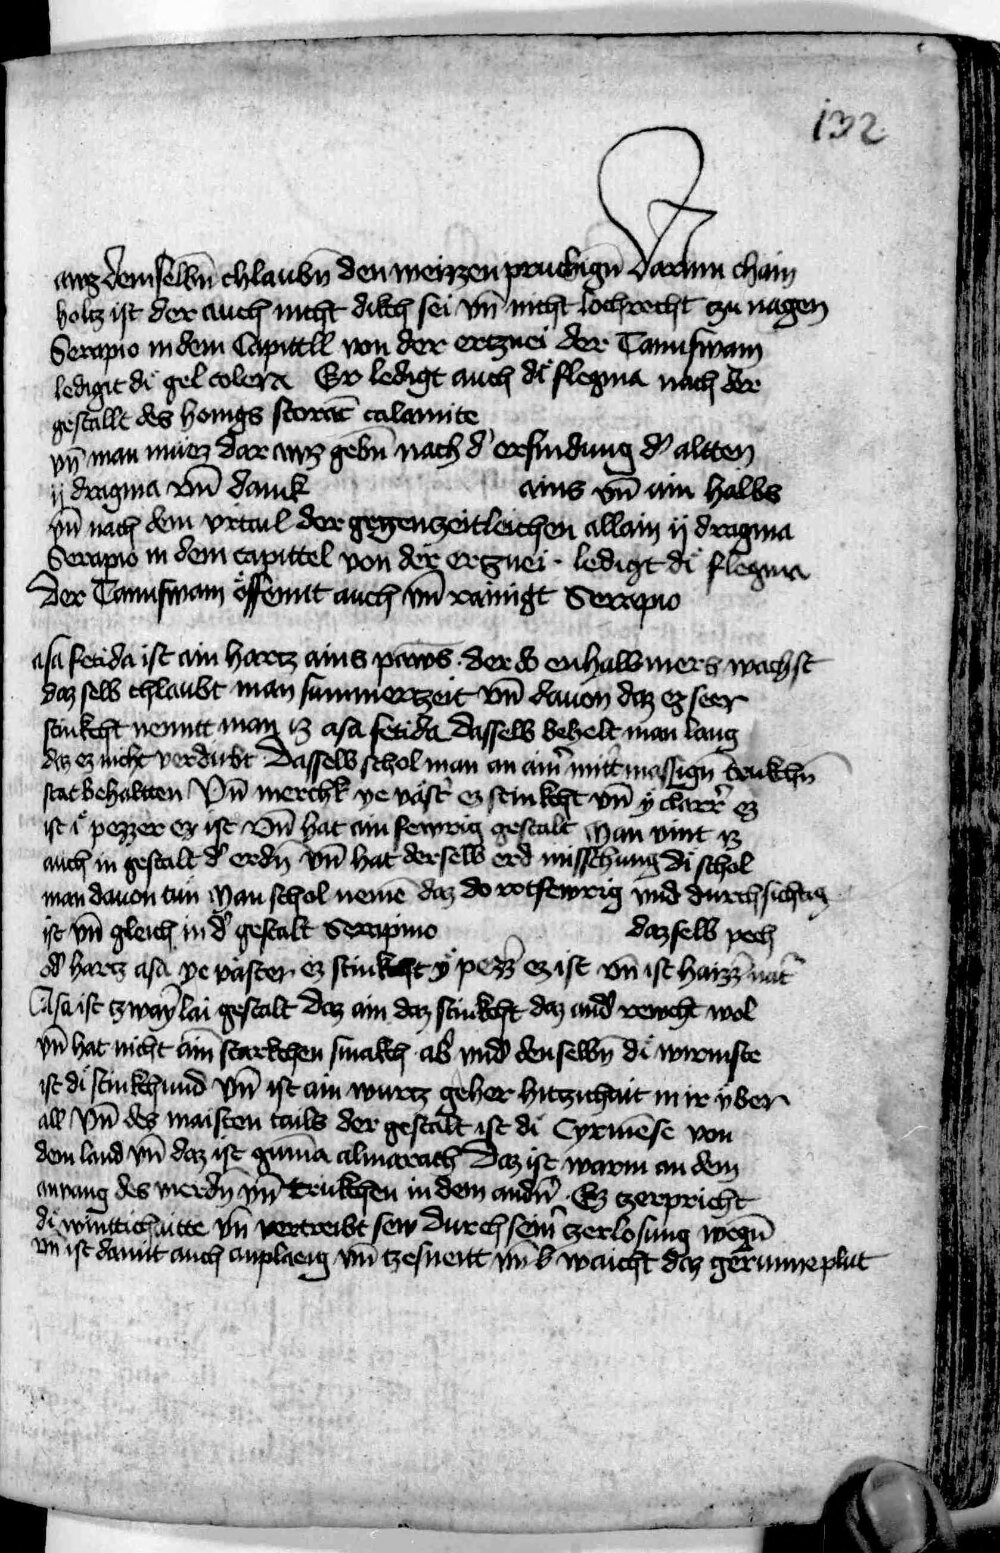 132
awz demselbn̄ chlaubn̄ den weizzen pruchign̄ Darinn chain
holtz ist der auch nicht dikch sei vn̄ nicht lochrecht czu nagen
Serapio in dem Capittll von der ertznei der Tannswam
ledigt di gel colera Er ledigt auch di flegma nach der
gestallt des honigs storac̄ calamite
vn̄ man muez dar awz gebn̄ nach d' erfindung d' altten
ij dragma vm̄ damik ains vn̄ ain halbs
vn̄ nach dem vrtail der gegenczeitleichen allain ij dragma
Serapio in dem capittel von der ertznei · ledigt di flegma
Der Tannswam öffennt auch vn̄ rainigt Serapio
asa fetida ist ain hartz ains pawms · der do enhalb mers wachst
daz selb chlaubt man summerzeit vn̄ dauon daz ez seer
stinkcht nennt man iz asa fetida Dasselb behelt man lang
daz ez nicht verdirbt Dasselb schol man an aim̄ mittmassign̄ trukchn̄
stat behaltten Vn̄ merchk ye vast' ez stinkcht vn̄ y clarr' ez
ist i pezzer ez ist Vn̄ hat ain fewrig gestalt Man vint iz
auch in gestalt d' erdn̄ vn̄ hat derselb erd mischung di schol
man dauon tun Man schol nemē daz do rotfewrig vnd durchsichtig
ist vn̄ gleich in d' gestalt Serapino dazselb pech
od' hartz asa ye vaster ez stinkcht y pezz' ez ist vn̄ ist haizz' nat'
Asa ist tzwaylai gestalt Daz ain daz stinkcht daz and' rewcht wol
vn̄ hat nicht ain̄ starkchen smakch · ab' vnd' denselbn̄ di wirmste
ist di stinkchund Vn̄ ist ain wurtz geher hitzichait in ir über
all Vn̄ des maisten tails der gestalt ist di Cyrinēse von
dem land vn̄ daz ist gum̄a almarach Daz ist warm an dem
anuang des vierdn̄ vn̄ trukchen in dem andn̄ · Ez tzerpricht
di winttichaitte vn̄ vertreibt sew durch sein' tzerlosung wegn̄
vn̄ ist damit auch anplaeig vn̄ tzesnent vn̄ b' waicht daz gerunne plut